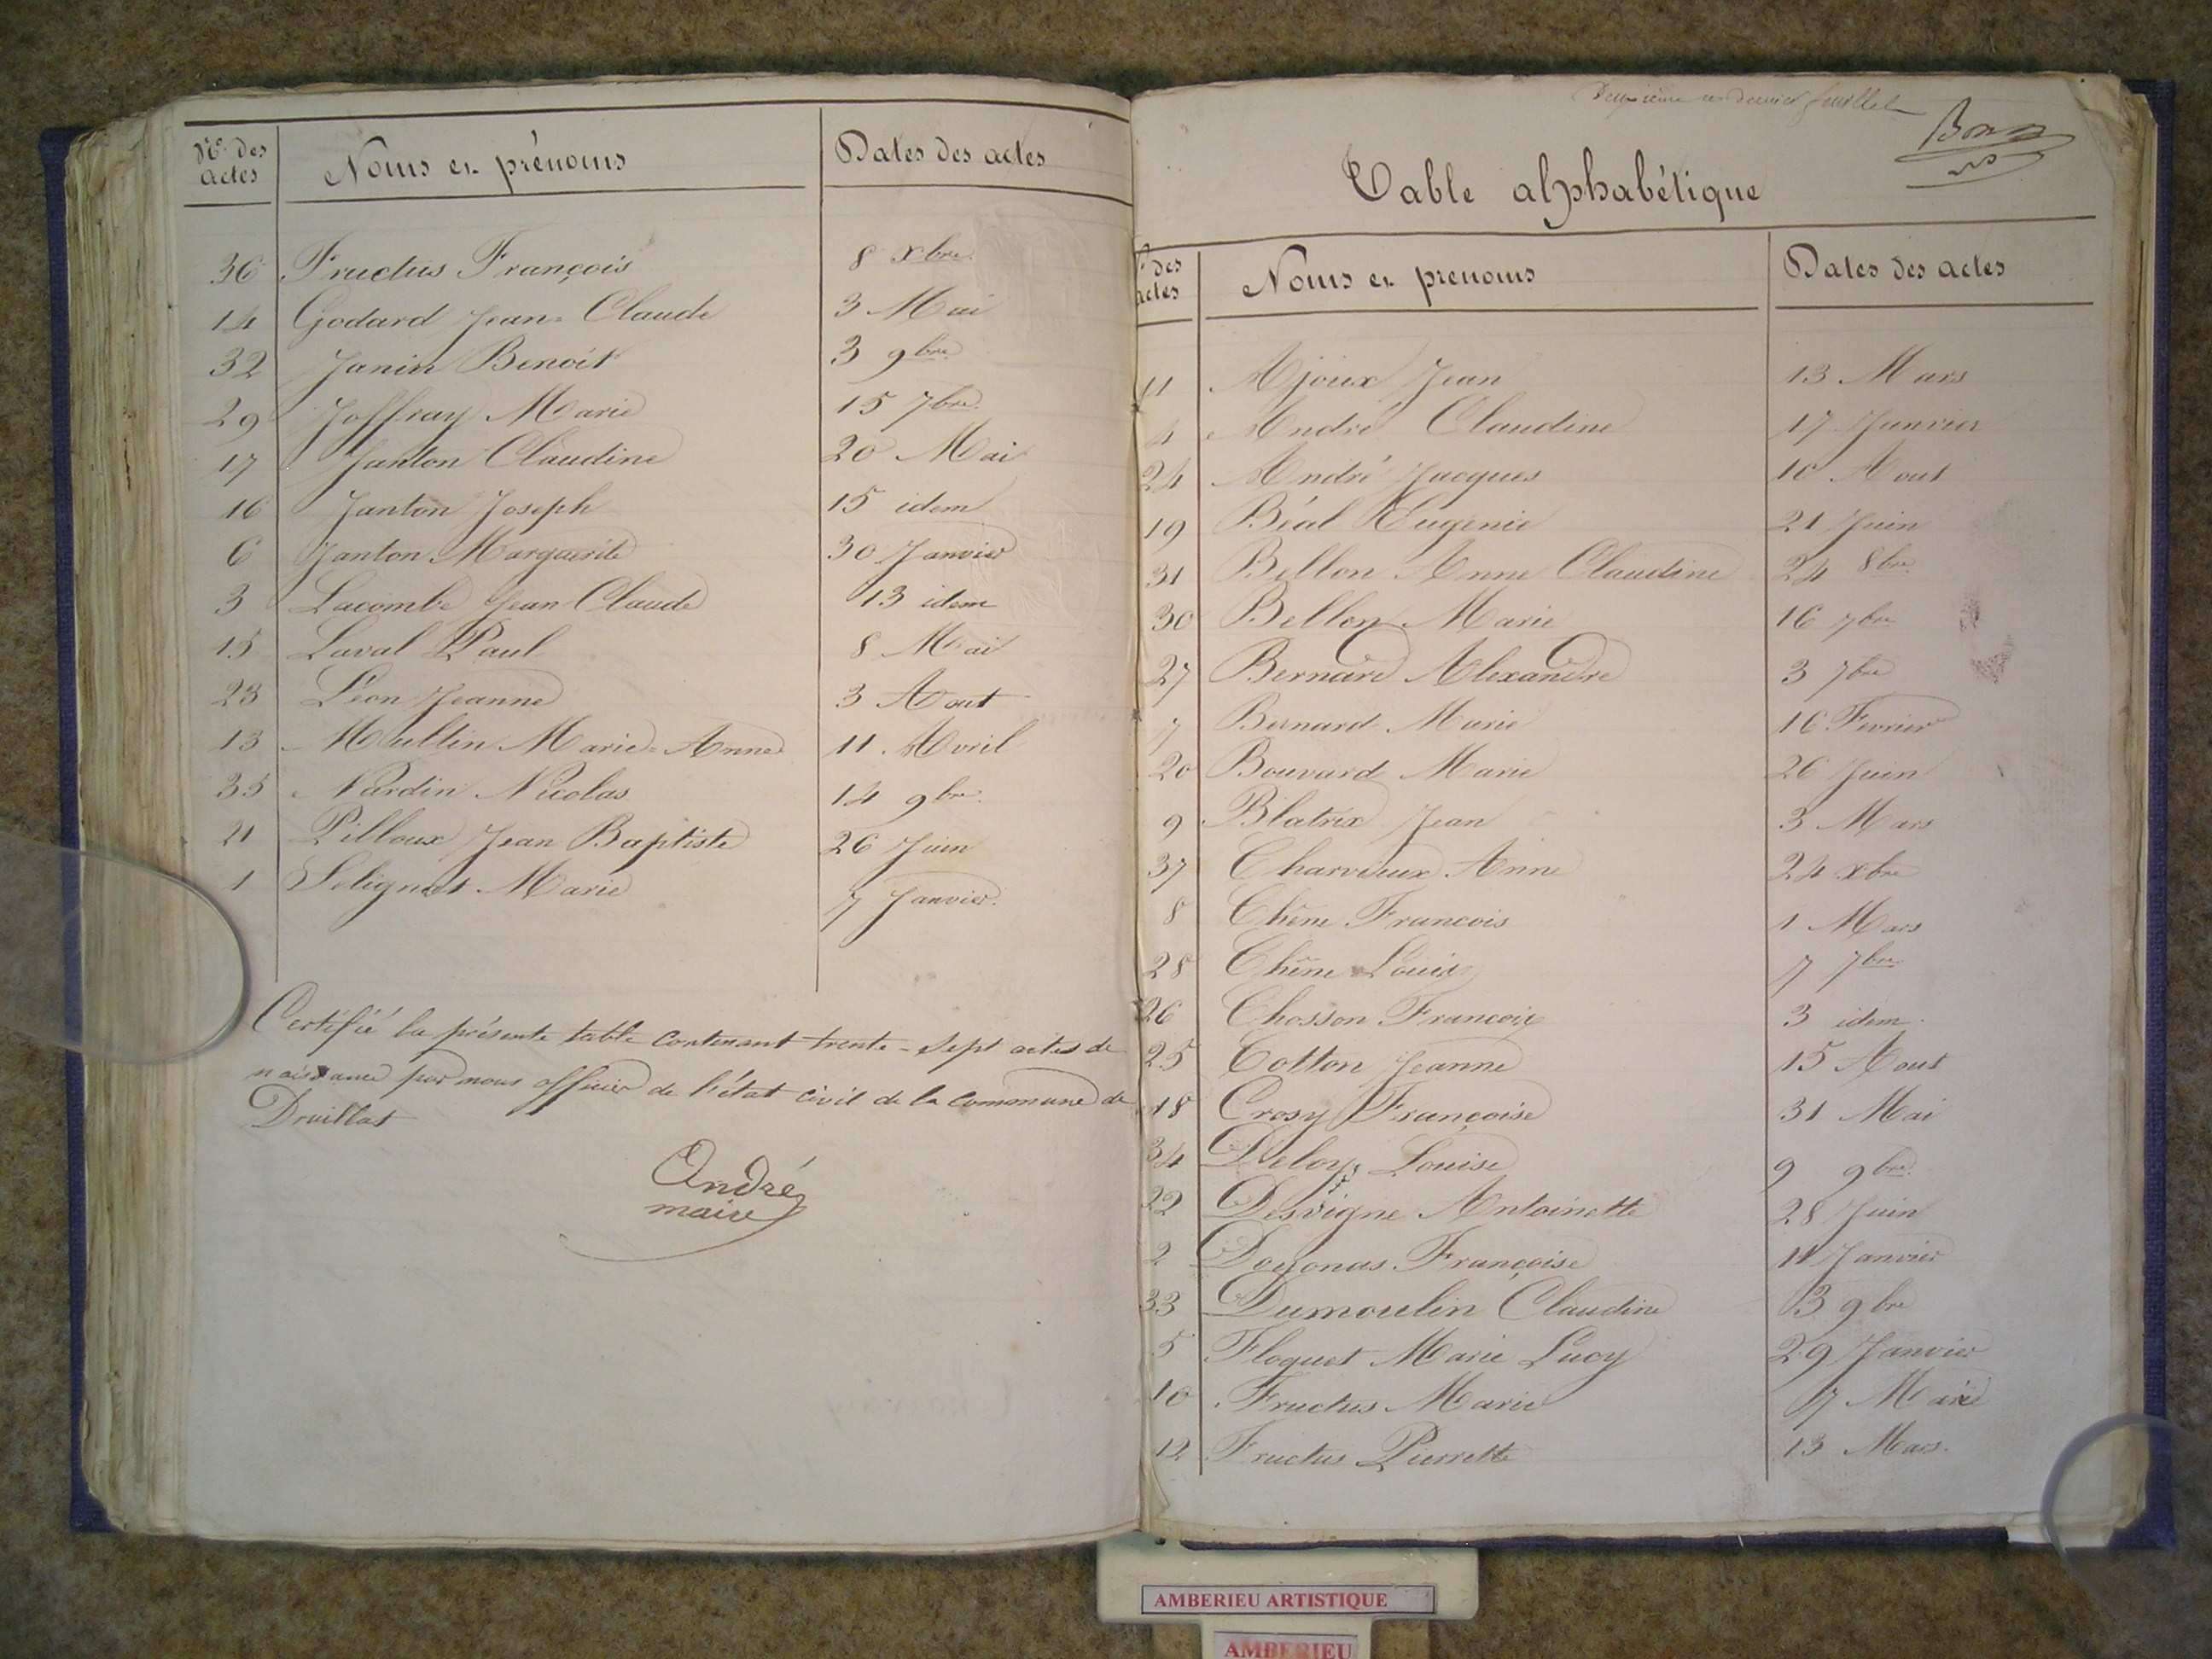 Nos des actes Noms et prénoms Dates des actes
36 Fructus François 8 xbre
14 Godard Jean-Claude 3 Mai
32 Janin Benoit 3 9bre
29 Joffray Marie 15 7bre
17 Janton Claudine 20 Mai
16 Janton Joseph 15 idem
6 Janton Marguerite 30 Janvier
3 Lacombe Jean Claude 13 idem
15 Laval Paul 8 Mai
23 Léon Jeanne 3 Aout
13 Mullin Marie-Anne 11 Avril
35 Nardin Nicolas 14 9bre
21 Pilloux Jean Baptiste 26 Juin
1 Selignat Marie 7 Janvier
Certifié la présente table contenant trente-sept actes de
naissance par nous officier de l'état civil de la Commune de
Druillat
André
maire
Deuxième et dernier feuillet
Table alphabétique
des actes Noms et prenoms Dates des actes
11 Ajoux Jean 13 Mars
4 André Claudine 17 Janvier
24 André Jacques 10 Aout
19 Béal Eugenie 21 Juin
31 Bellon Anne Claudine 24 8bre
30 Bellon Marie 16 7bre
27 Bernard Alexandre 3 7bre
7 Bernard Marie 16 Fevrier
20 Bouvard Marie 26 Juin
9 Blatrix Jean 3 Mars
37 Charvieux Anne 24 xbre
8 Chêne Francois 1 Mars
28 Chêne Louis 7 7bre
26 Chosson Francois 3 idem
25 Cotton Jeanne 15 Aout
18 Crosy Françoise 31 Mai
34 Deloy Louise 9 9bre
22 Desvigne Antoinette 28 Juin
2 Françoise 11 Janvier
33 Dumoulin Claudine 3 9bre
5 Floquet Marie Lucy 29 Janvier
10 Fructus Marie 7
12 Fructus Pierrette 13 Mars
AMBERIEU ARTISTIQUE
AMBERIEU